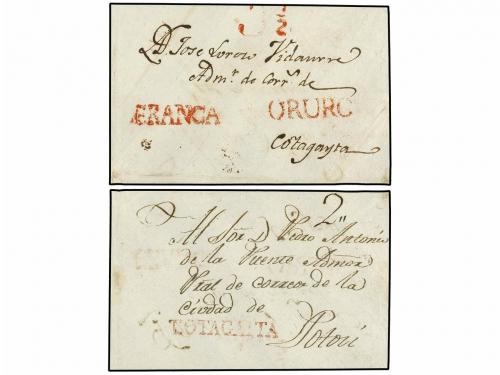 1/2
A D. Jose Lorezo Vidaurre
Admr. de Corrs. de
FRANCA ORURO
Cotagayta
2"
Al Sor. D. Pedro Antonio
de la Fuente Admor
Pral de correos de la
Ciudad de
COTAGAITA Potosi